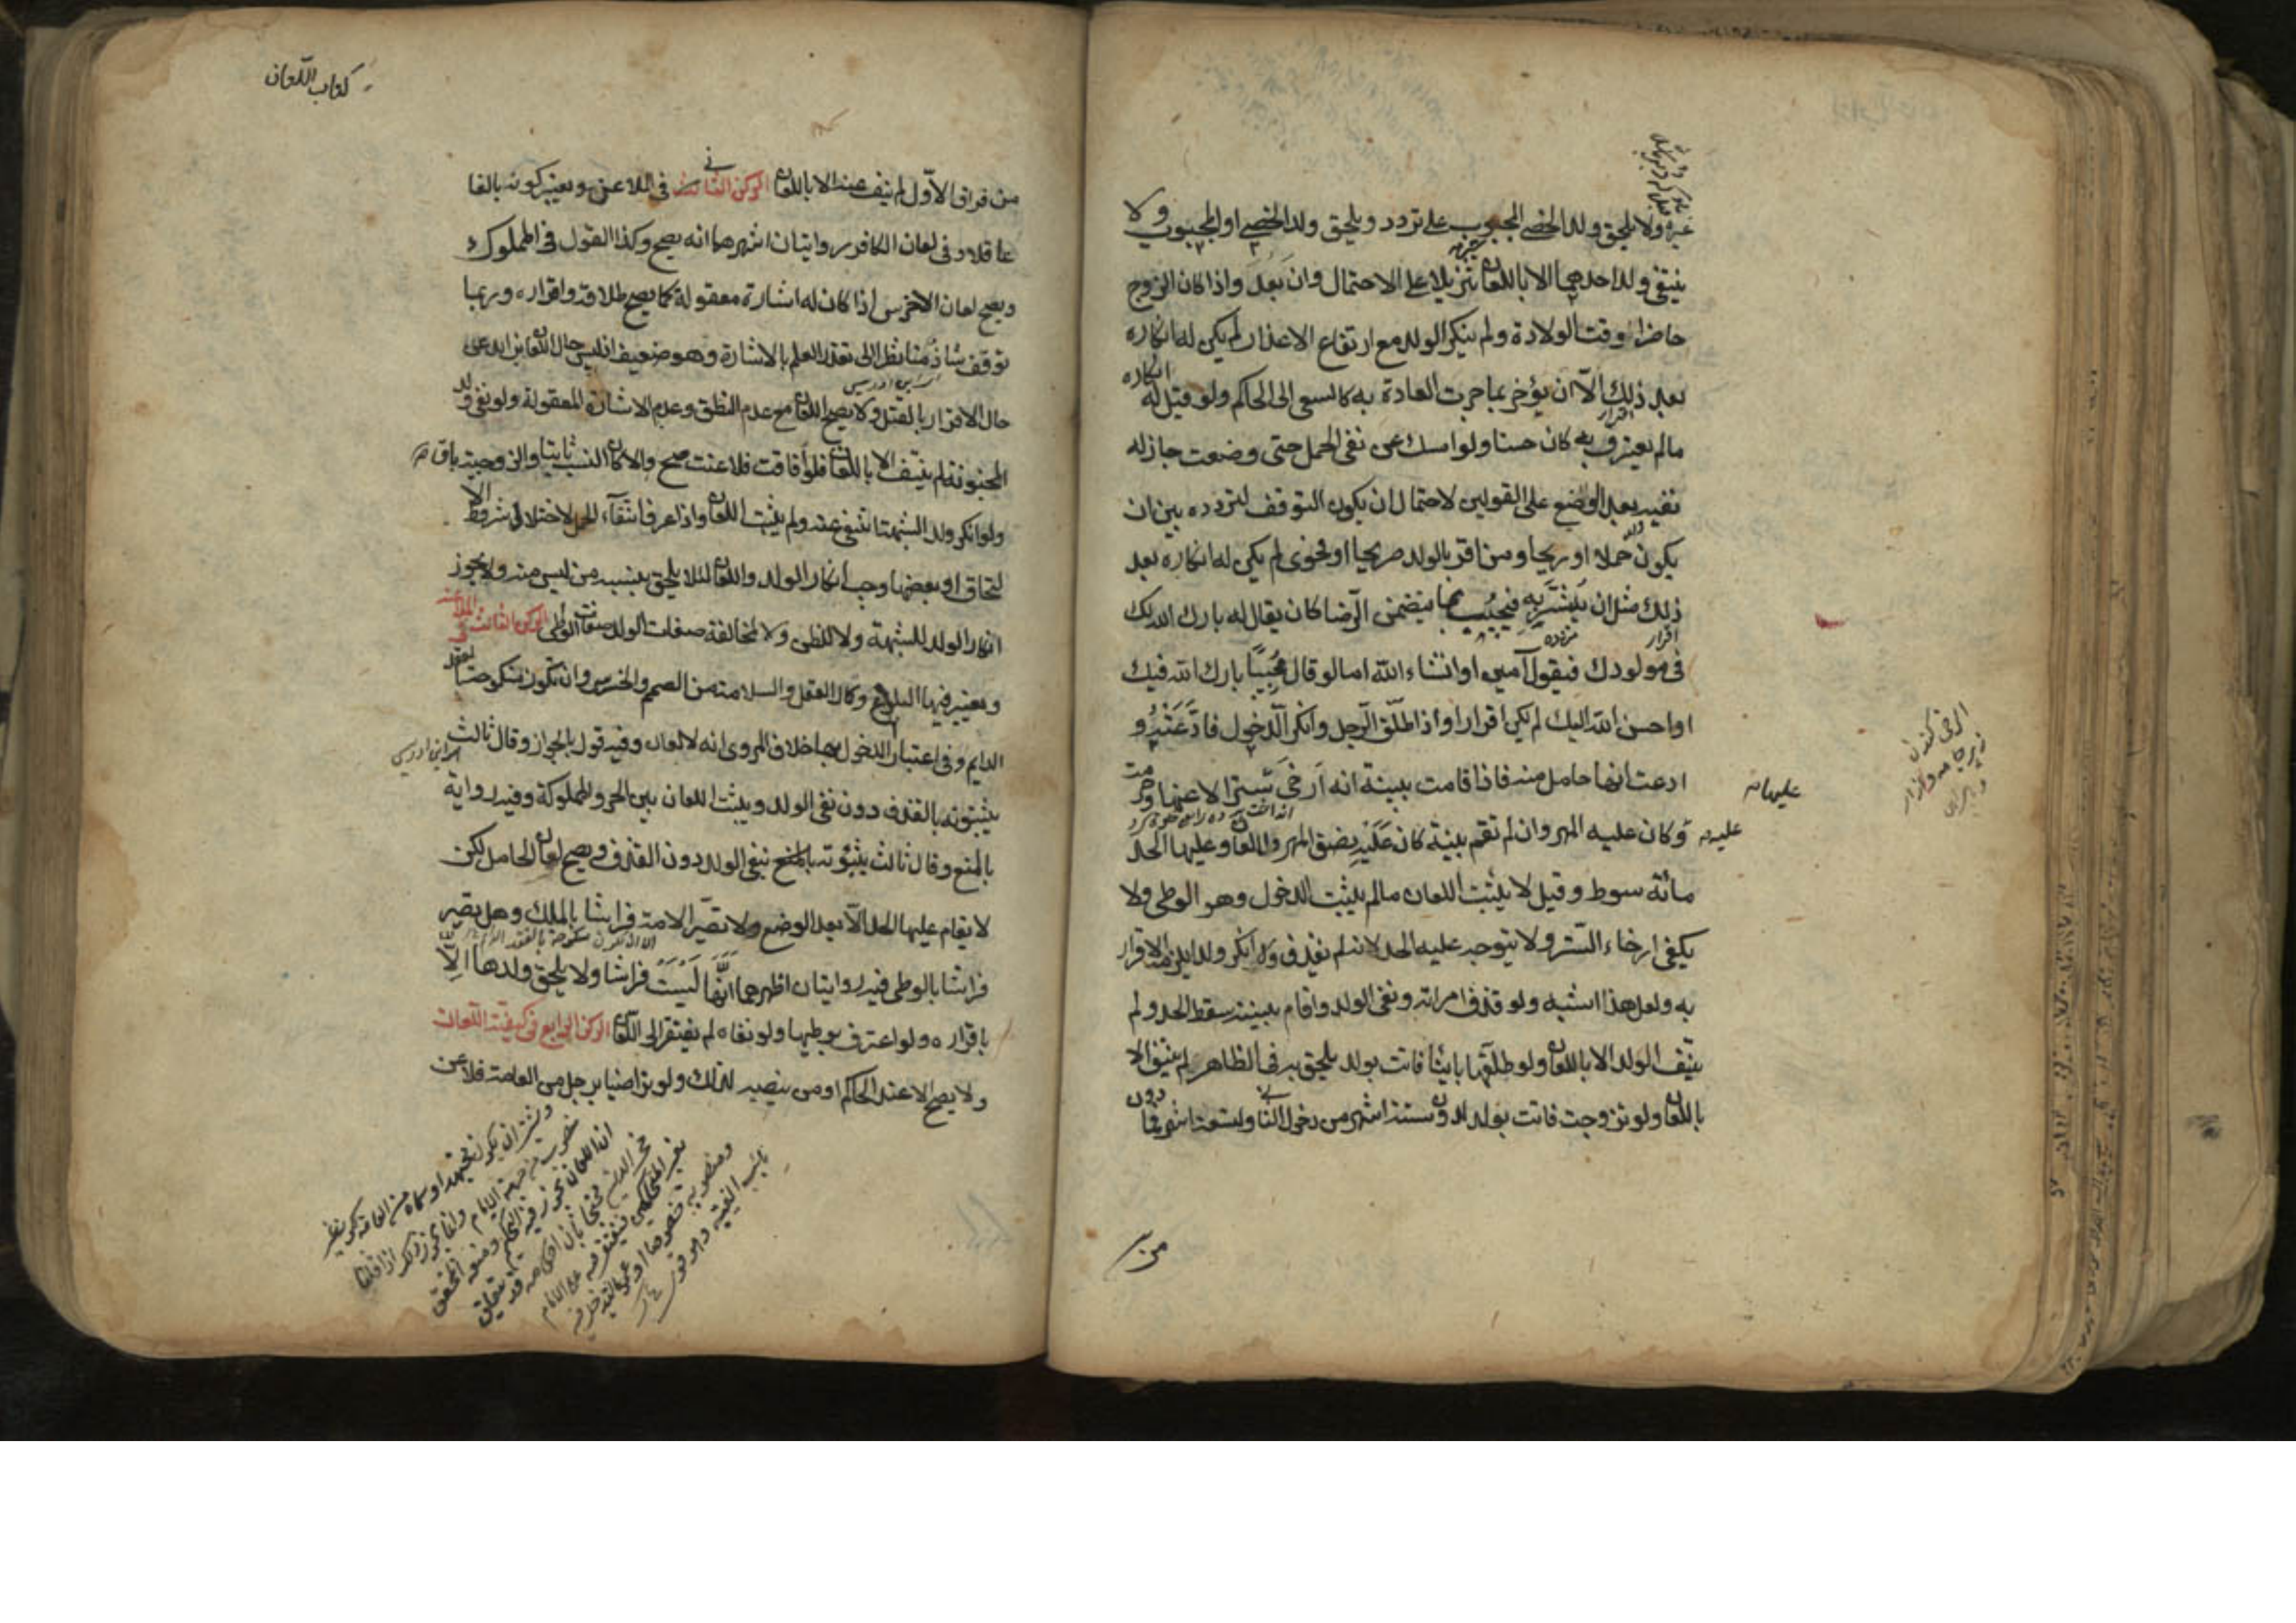 غيره ولا يلحق ولد الخصي المجبوب على تردد ويلحق ولد الخصي او المجبوب ولا
ينتفي ولد احدهما الا باللعان تنزيلا على الاحتمال وان بعد واذا كان الزوج
حاضرا وقت الولادة ولم ينكر الولد مع ارتفاع الاعذار لم يكن له انكاره
بعد ذلك الا ان يؤخر بما جرت العادة به كالسعي الى الحاكم ولو قيل له انكاره
مالم يعترف به كان حسنا ولو امسك عن نفي الحمل حتى وضعت جاز له
نفيه بعد الوضع على القولين لاحتمال ان يكون التوقف لتردده بين ان
يكون حملا او ريحا ومن اقر بالولد صريحا او فحوى لم يكن له انكاره بعد
ذلك مثل ان يبشر به فيجيب بما يتضمن الرضا كان يقال له بارك الله لك
في مولودك فيقول آمين او انشاء الله اما لو قال مجيبا بارك الله فيك
او احسن الله اليك لم يكن اقرارا واذا طلق الرجل وانكر الدخول فادعته و
ادعت انها حامل منه فاذا اقامت بينة انه ارخى سترا لاعنها وحرمت
عليه وكان عليه المهر وان لم تقم بينة كان عليه نصف المهر ولا لعان وعليها الحد
مائة سوط وقيل لا يثبت اللعان مالم يثبت الدخول وهو الوطي ولا
يكفي ارخاء الستر ولا يتوجه عليه الحد لانه لم يقذف ولا انكر ولدا يلزمه الاقرار
به ولعل هذا اشبه ولو قذف امراته ونفى الولد واقام بينة سقط الحد ولم
ينتف الولد الا باللعان ولو طلقها باينا فاتت بولد يلحق به في الظاهر لم ينتف الا
باللعان ولو تزوجت فاتت بولد لدون ستة اشهر من دخول الثاني ولتسعة اشهر فما دون
عليها
عليه
كتاب اللعان
من فراق الاول لم ينتف عنه الا باللعان الركن الثاني في الملاعن ويعتبر كونه بالغا
عاقلا وفي لعان الكافر روايتان اشهرهما انه يصح وكذا القول في المملوك
ويصح لعان الاخرس اذا كان له اشارة معقولة كما يصح طلاقه واقراره وربما
توقف شاذ منا نظرا الى تعذر العلم بالاشارة وهو ضعيف اذ ليس حال اللعان بزايد عن
حال الاقرار بالقتل ولا يصح اللعان مع عدم النطق وعدم الاشارة المعقولة ولو نفى ولد
المجنونة لم ينتف الا باللعان فلو افاقت فلاعنت صح والا كان النسب ثابتا والزوجية باقية
ولو انكر ولد الشبهة انتفى عنه ولم يثبت اللعان واذا عرف انتقاء الحمل لاختلال شروط الا
لتحاق او بعضها وجب انكار الولد واللعان لئلا يلحق بنسبه من ليس منه ولا يجوز
انكار الولد للشبهة ولا للظن ولا لمخالفة صفات الولد صفات الواطي الركن الثالث في الملاعنة
ويعتبر فيها البلوغ وكمال العقل والسلامة من الصمم والخرس وان تكون منكوحة بالعقد
الدايم وفي اعتبار الدخول بها خلاف المروي انه لا لعان وفيه قول بالجواز وقال ثالث
بثبوته بالقذف دون نفي الولد ويثبت اللعان بين الحر والمملوكة وفيه رواية
بالمنع وقال ثالث بثبوته بنفي الولد دون القذف ويصح لعان الحامل لكن
لا يقام عليها الحد الا بعد الوضع ولا تصير الامة فراشا بالملك وهل تصير
فراشا بالوطي فيه روايتان اظهرهما انها ليست فراشا ولا يلحق ولدها الا
باقراره ولو اعترف بوطيها ولو نفاه لم يفتقر الى اللعان الركن الرابع في كيفية اللعان
ولا يصح الا عند الحاكم او من ينصبه لذلك ولو تراضيا برجل من العامة فلاعن
ابن ادريس